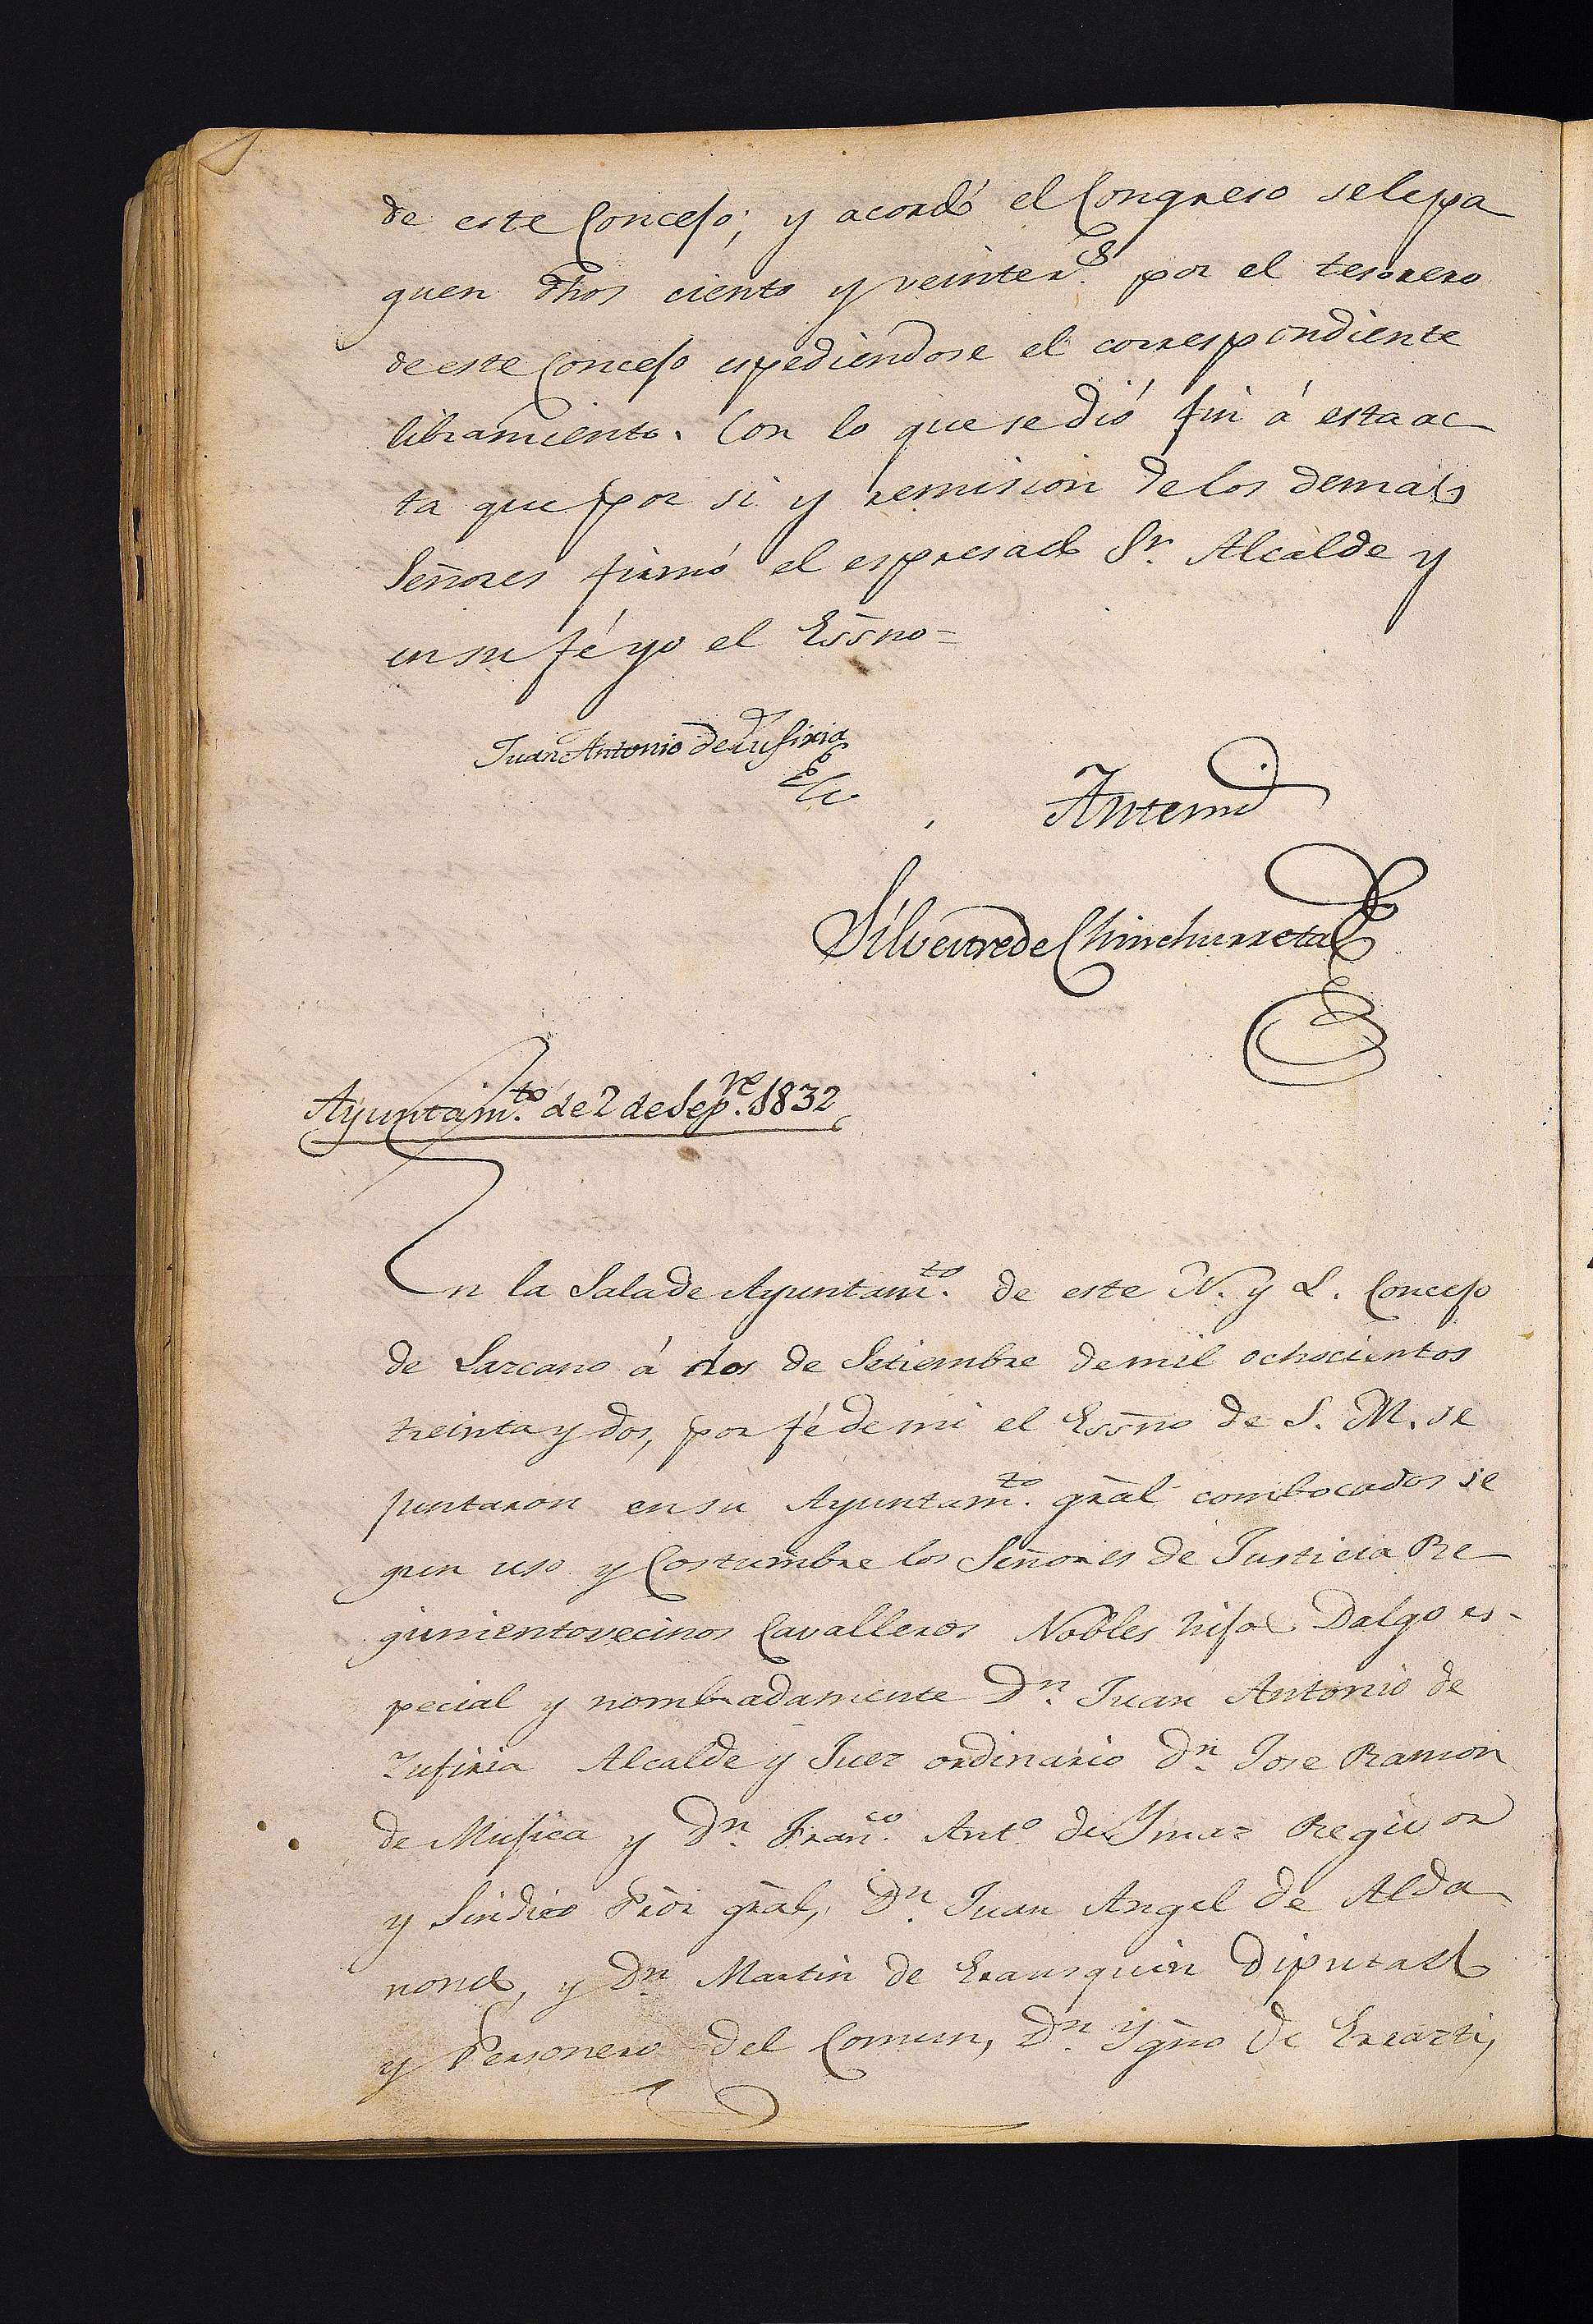 de este Concejo; y acordó el Congreso se le pa
guen dhos ciento y veinte r.s por el tesorero
de este Concejo espediendose el correspondiente
libramiento. Con lo que se dió fin á esta ac
ta que por si y remision de los demas
Señores firmó el espresado Sr. Alcalde y
en su fé yo el Essno=
Juan Antonio de Zufiria
Antemi
Silvestre de Chinchurreta
Ayuntam.to de 2 de Sep.re 1832
En la Sala de Ayuntam.to de este N. y L. Concejo
de Lazcano á dos de Setiembre de mil ochocientos
treinta y dos, por fé de mi el Essno de S. M. se
juntaron en su Ayuntam.to gral combocados se
gun uso y Costumbre los Señores de Justicia Re
gimiento vecinos Cavalleros Nobles hijos Dalgo es-
pecial y nombradamente Dn. Juan Antonio de
Zufiria Alcalde y Juez ordinario Dn. Jose Ramon
de Mujica y Dn. Fran.co Ant.o de Ymaz Regidor
y Sindico Pror gral, Dn. Juan Angel de Alda
nondo, y Dn. Martin de Erausquin Diputado
y Personero del Comun, Dn. Ygno de Errazti,